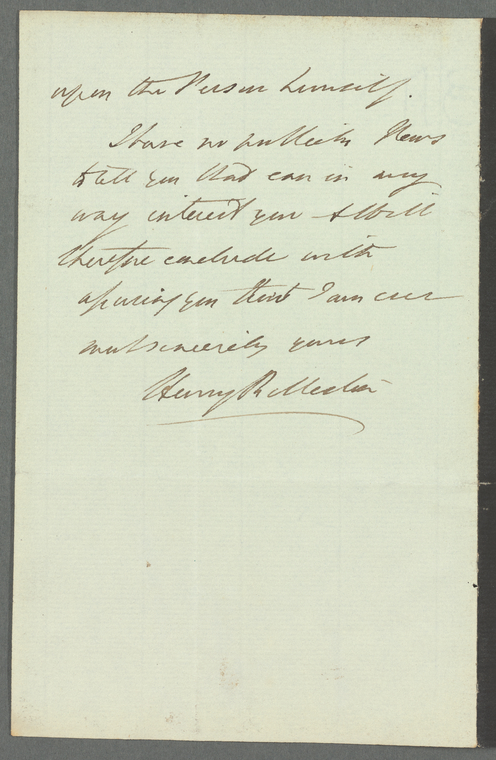 upon the Person himself.
I have no News
to tell you that can in any
way interest you & Will
therefore conclude with
assuring you that I am ever
most sincerely yours
Henry